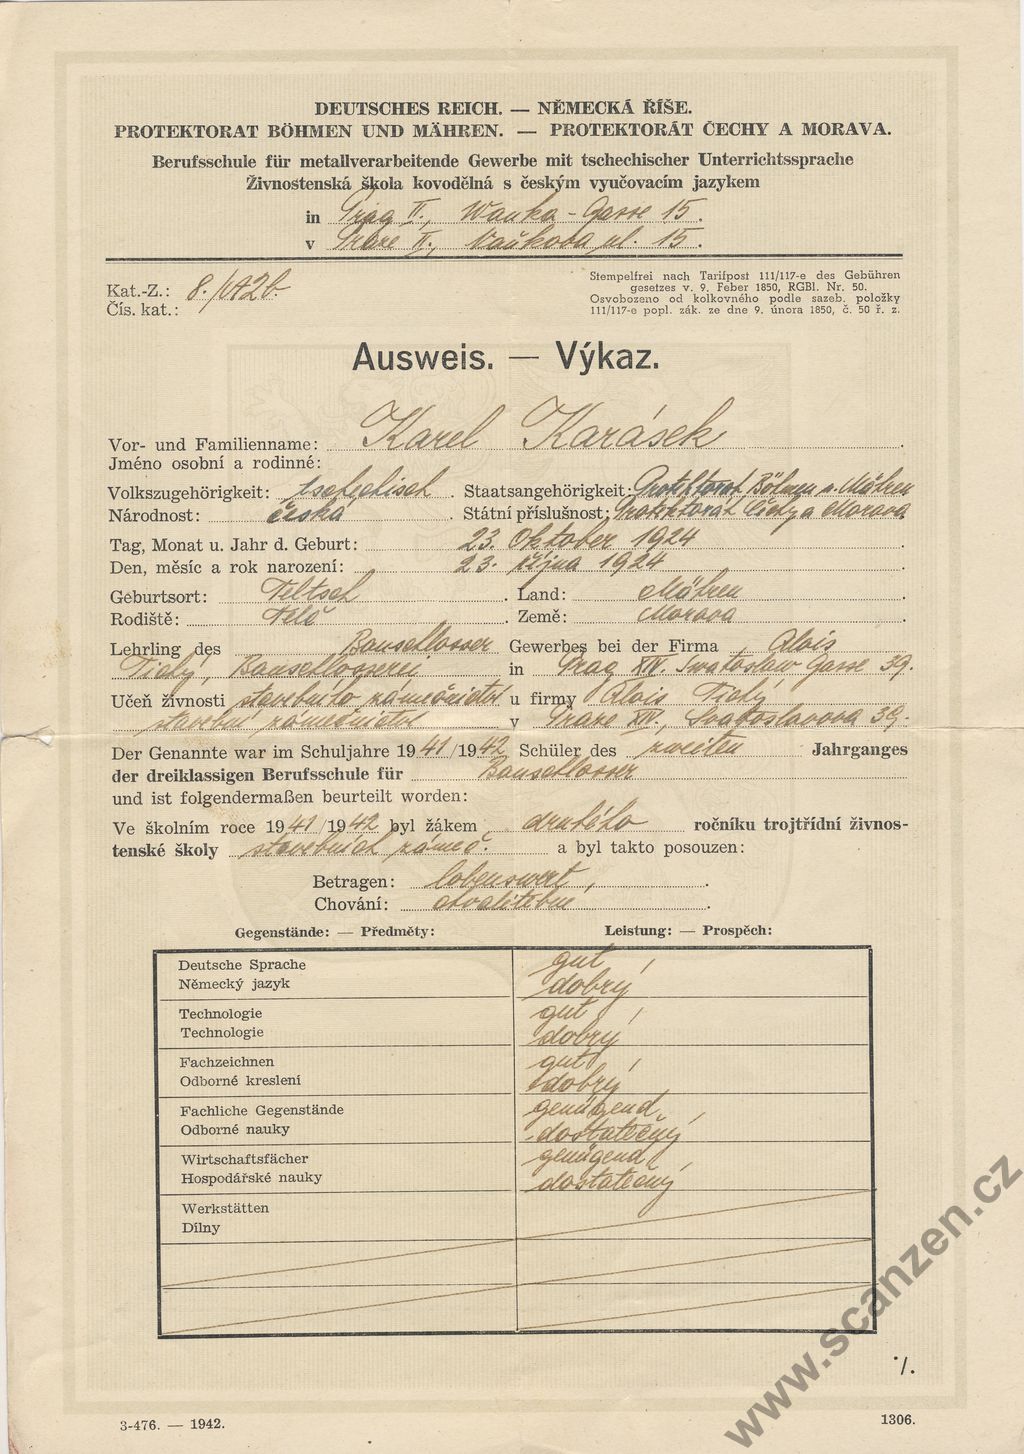 DEUTSCHES REICH. — NĚMECKÁ ŘÍŠE.
PROTEKTORAT BÖHMEN UND MÄHREN. — PROTEKTORÁT ČECHY A MORAVA.
Berufsschule für metallverarbeitende Gewerbe mit tschechischer Unterrichtssprache
Živnostenská škola kovodělná s českým vyučovacím jazykem
in Prag II., Wanka-Gasse 15.
v Praze II., Vaňkova ul. 15.
Stempelfrei nach Tarifpost 111/117-e des Gebühren
gesetzes v. 9. Feber 1850, RGBl. Nr. 50.
Osvobozeno od kolkovného podle sazeb. položky
111/117-e popl. zák. ze dne 9. února 1850, č. 50 ř. z.
Kat.-Z.: 8.
Čís. kat.:
Ausweis. — Výkaz.
Vor- und Familienname: Karel Karásek
Jméno osobní a rodinné:
Volkszugehörigkeit: tschechisch. Staatsangehörigkeit: Protektorat Böhmen u. Mähren
Národnost: česká. Státní příslušnost: Protektorát Čechy a Morava
Tag, Monat u. Jahr d. Geburt: 23. Oktober 1924.
Den, měsíc a rok narození: 23. října 1924.
Geburtsort: Teltsch. Land: Mähren.
Rodiště: Telč. Země: Morava.
Lehrling des Bauschlosser Gewerbes bei der Firma Alois
Tichý, Bauschlosserei in Prag XIV. Swatoslaw Gasse 39.
Učeň živnosti stavebního zámečnictví u firmy Alois Tichý
stavební zámečnictví v Praze XIV, Svatoslavova 39.
Der Genannte war im Schuljahre 1941/1942 Schüler des zweiten Jahrganges
der dreiklassigen Berufsschule für Bauschlosser
und ist folgendermaßen beurteilt worden:
Ve školním roce 1941/1942 byl žákem druhého ročníku trojtřídní živnos-
tenské školy stavebních zámeč. a byl takto posouzen:
Betragen: lobenswert,
Chování: chvalitebné
Gegenstände: — Předměty: Leistung: — Prospěch:
Deutsche Sprache gut,
Německý jazyk dobrý
Technologie gut,
Technologie dobrý
Fachzeichnen gut,
Odborné kreslení dobrý
Fachliche Gegenstände genügend,
Odborné nauky dostatečný
Wirtschaftsfächer genügend,
Hospodářské nauky dostatečný
Werkstätten
Dílny
·/.
3-476. — 1942. 1306.
www.scanzen.cz